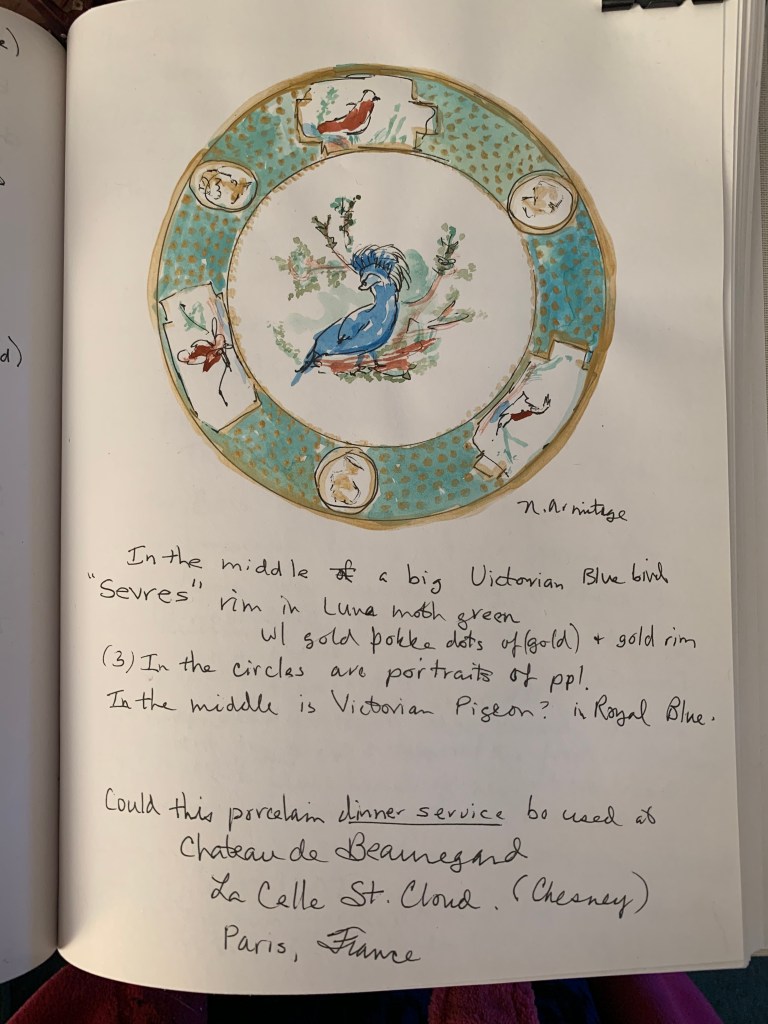 e)
d)
N. Armitage
In the middle of a big Victorian Blue bird
"Sevres" rim in Luna moth green
w/ gold pokke dots of (gold) + gold rim
(3) In the circles are portraits of ppl.
In the middle is Victorian Pigeon? in Royal Blue.
Could this porcelain dinner service be used at
Chateau de Beauregard
La Celle St. Cloud. (Chesney)
Paris, France